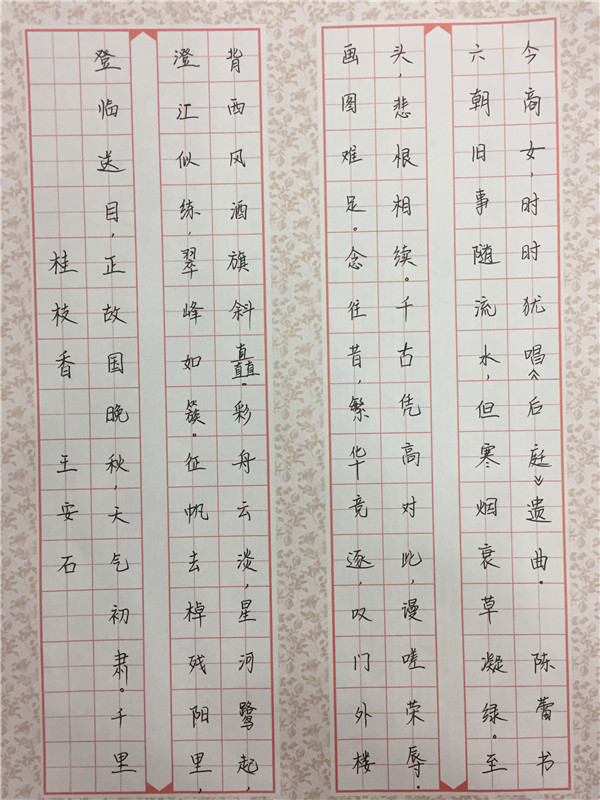 桂枝香 王安石
登临送目,正故国晚秋,天气初肃。千里
澄江似练,翠峰如簇。征帆去棹残阳里,
背西风酒旗斜矗.彩舟云淡,星河鹭起,
画图难足。念往昔,繁华竞逐,叹门外楼
头,悲恨相续。千古凭高对此,谩嗟荣辱.
六朝旧事随流水,但寒烟衰草凝绿。至
今商女,时时犹唱《后庭》遗曲. 陈蕾书